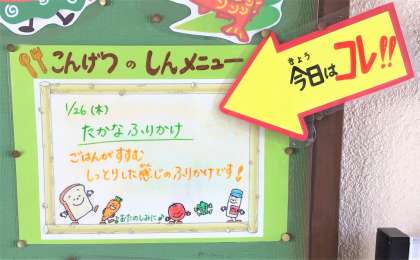 こんげつのしんメニュー
きょう
今日はコレ!!
1/26(木)
たかなふりかけ
ごはんがすすむ
しっとりした感じのふりかけです!
おたのしみに♪